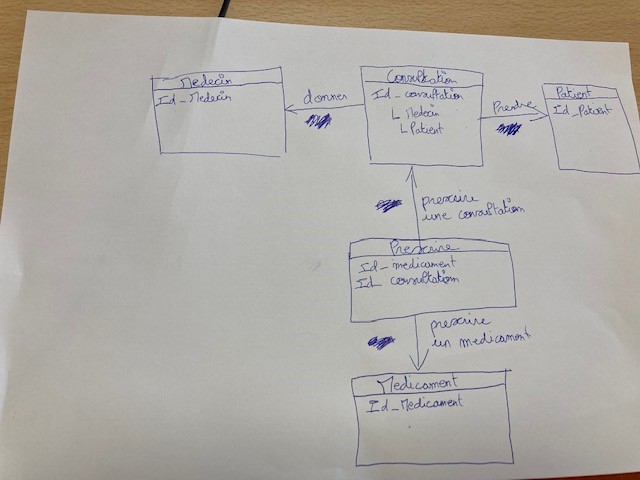 Medecin
Id_Medecin
donner
Consultation
Id_consultation
L Medecin
L Patient
Prendre
Patient
Id_Patient
prescrire
une consultation
Prescrire
Id_medicament
Id_consultation
prescrire
un medicament
Medicament
Id_Medicament